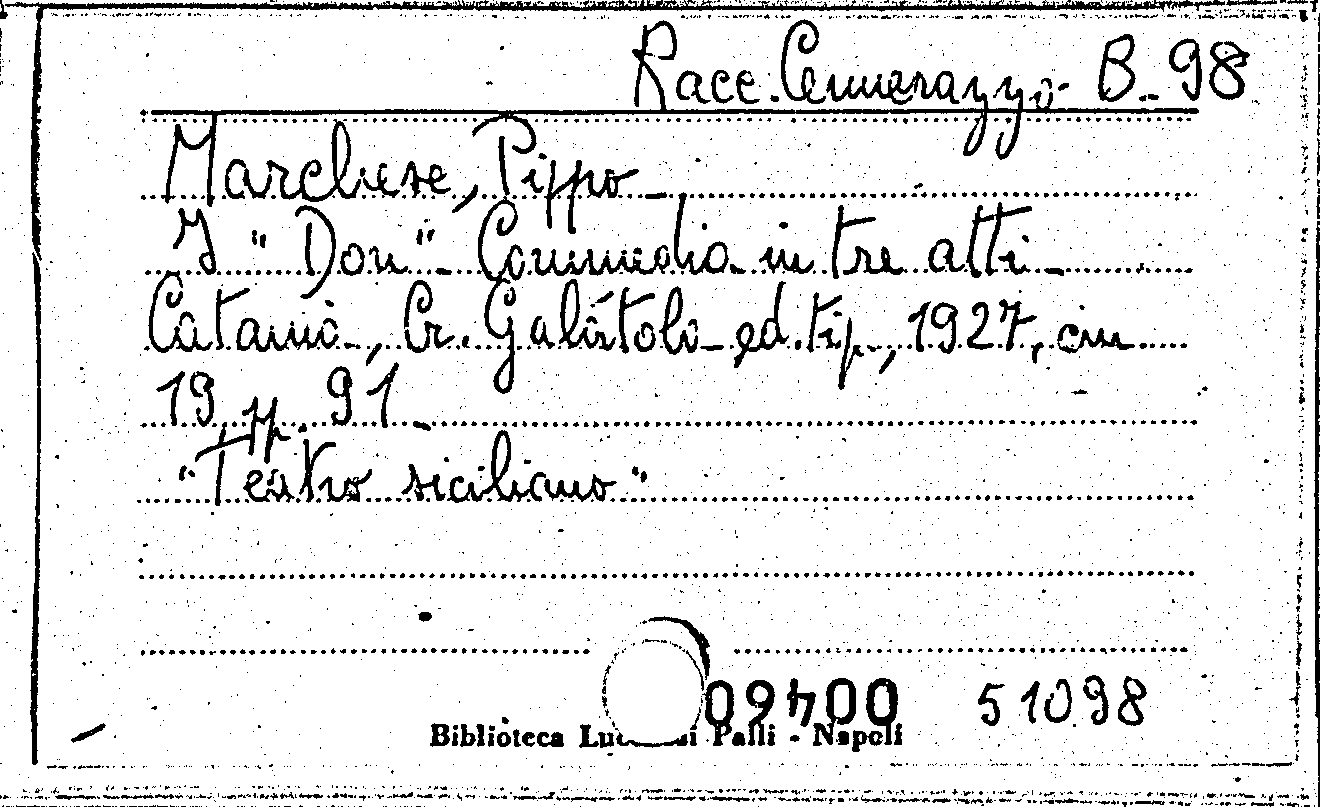 Racc. Cennerazzo B. 98
Marchese, Pippo
I "Don" Commedia in tre atti
Catania, Cr. Galàtola ed. tip., 1927, cm
19 pp. 91
"Teatro siciliano"
51098
Biblioteca Palli - Napoli